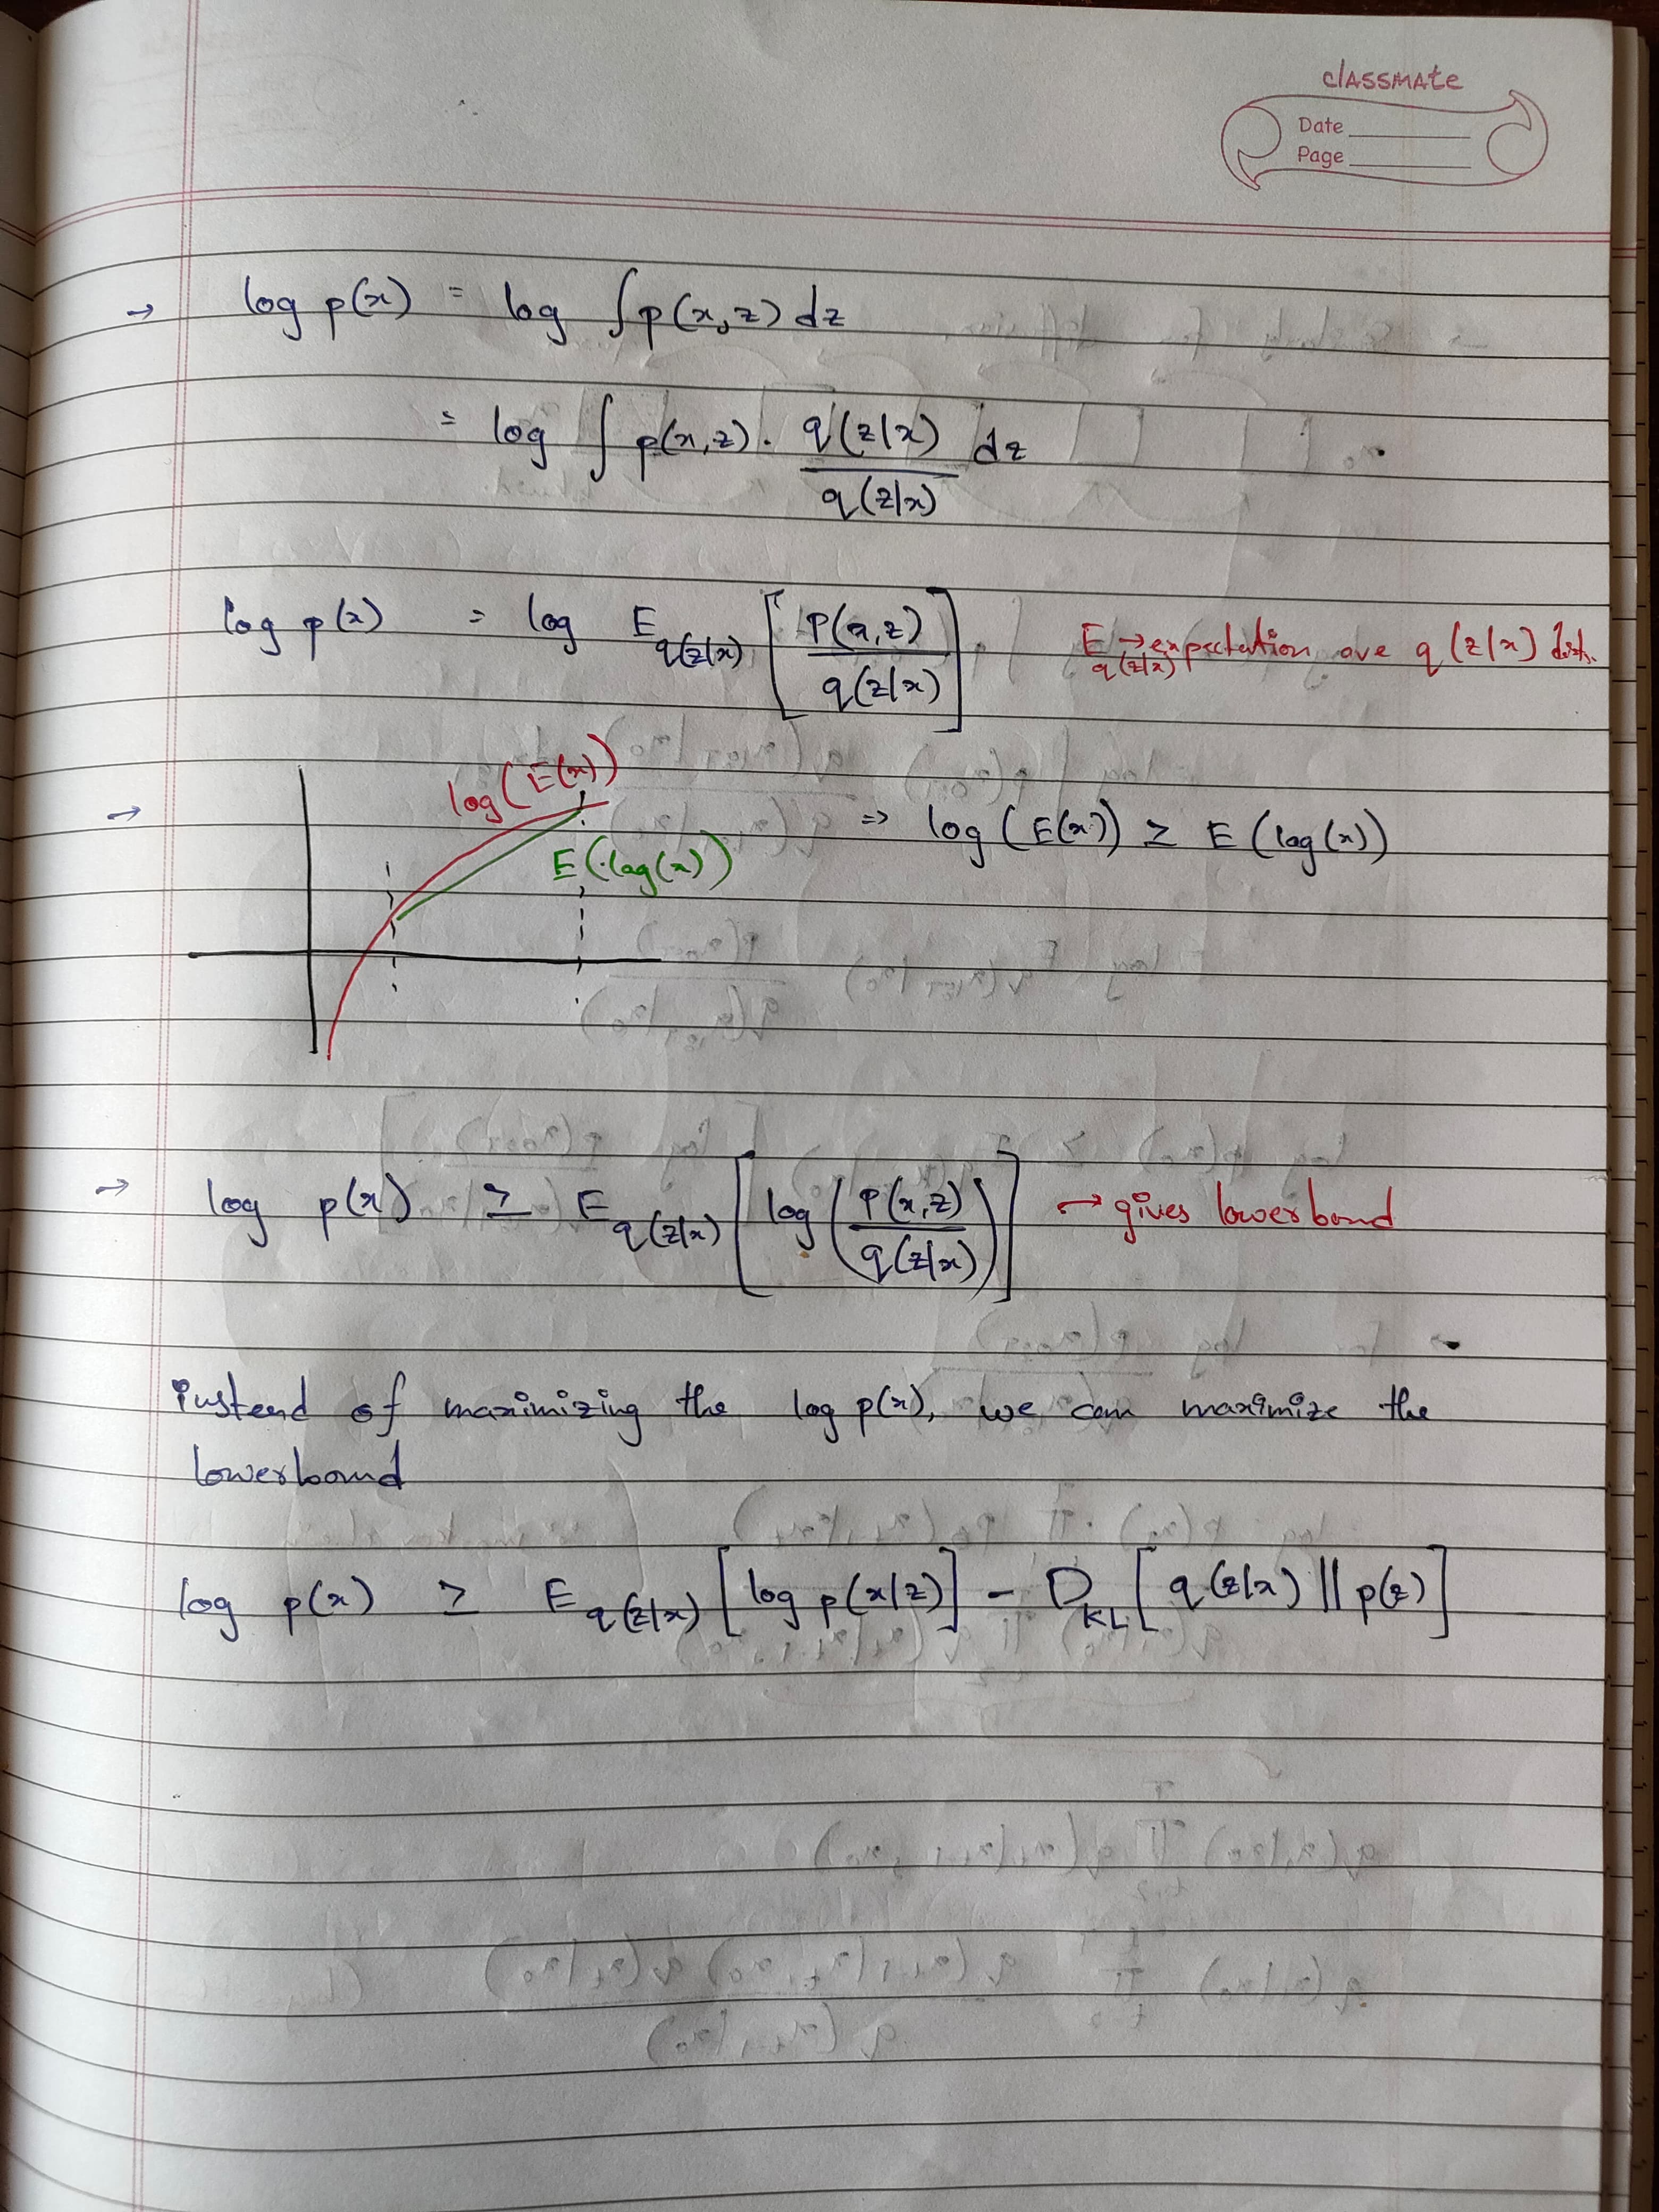 classmate
Date
Page
→ log p(x) = log ∫p(x,z) dz
= log ∫ p(x,z) . q(z|x) / q(z|x) dz
log p(x) = log E_q(z|x) [ P(x,z) / q(z|x) ] . E_q(z|x) → expectation ove q(z|x) dist.
→ log(E(x))
E(log(x))
⇒ log(E(x)) ≥ E(log(x))
→ log p(x) ≥ E_q(z|x) [ log ( P(x,z) / q(z|x) ) ] → gives lowerbound
instead of maximizing the log p(x), we can maximize the
lowerbound
log p(x) ≥ E_q(z|x) [ log p(x|z) ] - D_KL [ q(z|x) || p(z) ]